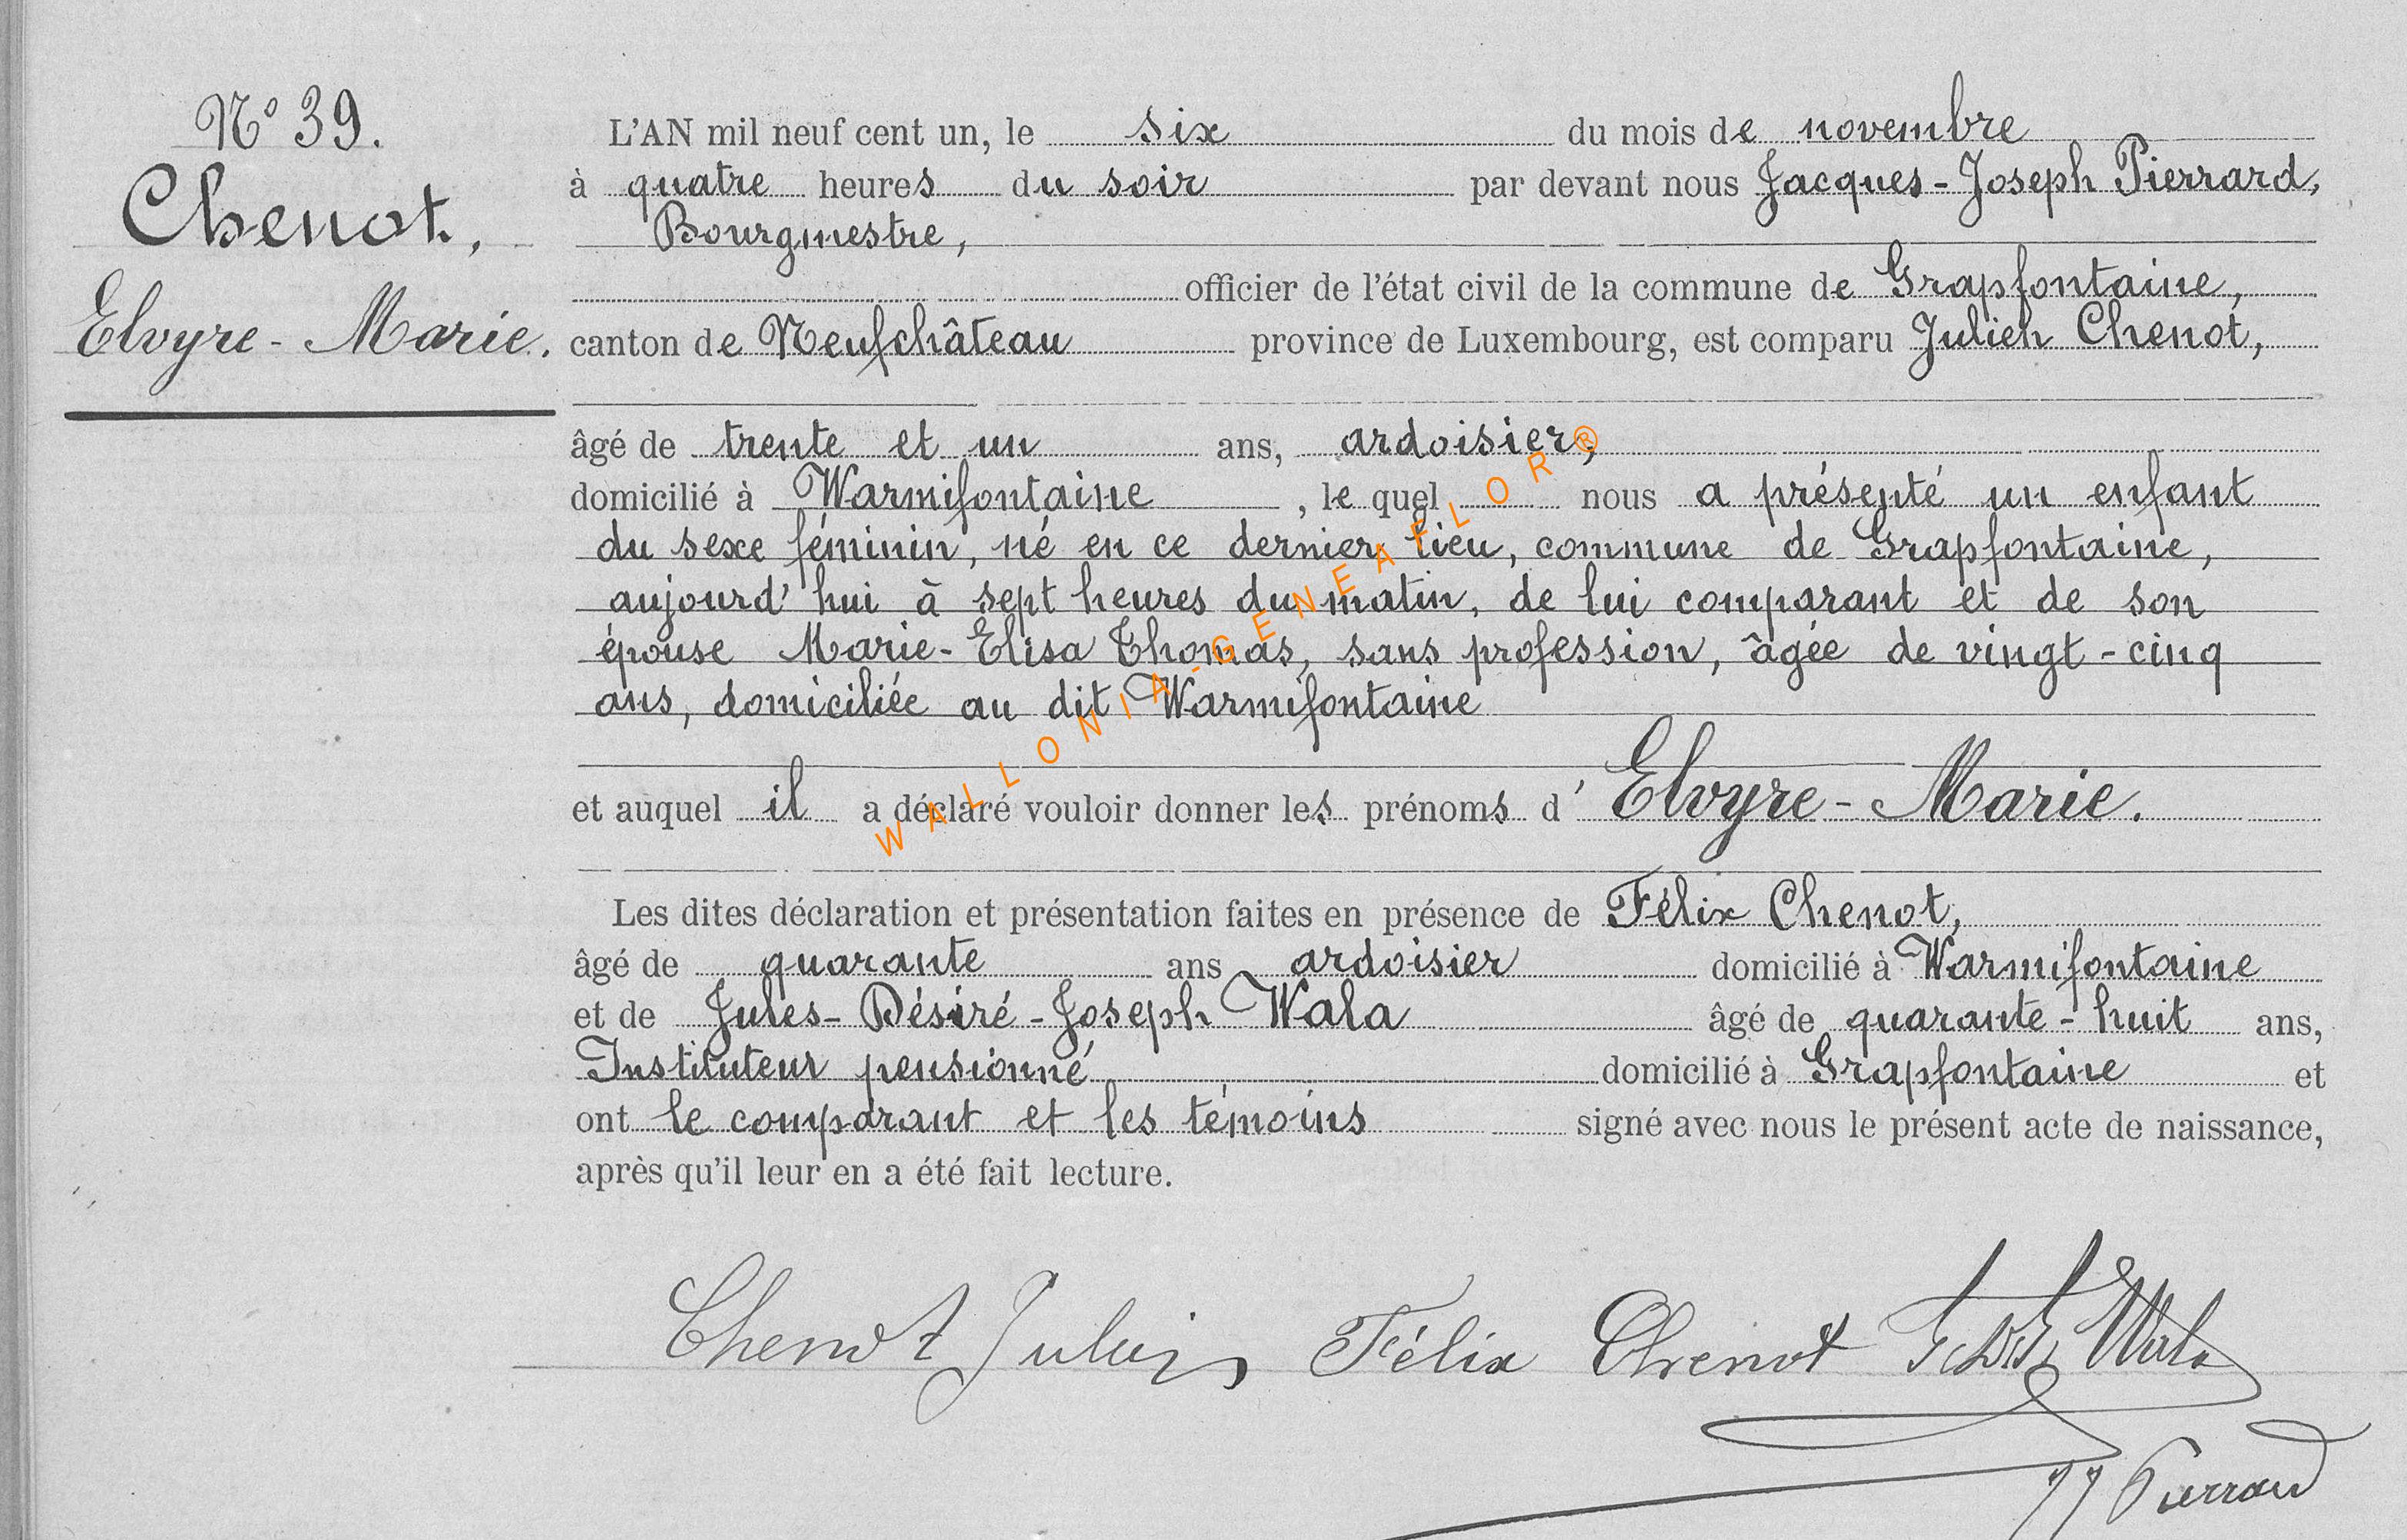 N° 39.
Chenot,
Elvyre - Marie.
L'AN mil neuf cent un, le six du mois de novembre
à quatre heures du soir par devant nous Jacques - Joseph Pierrard,
Bourgmestre,
officier de l'état civil de la commune de Grapfontaine,
canton de Neufchâteau province de Luxembourg, est comparu Julien Chenot,
âgé de trente et un ans, ardoisier,
domicilié à Warmifontaine, le quel nous a présenté un enfant
du sexe féminin, né en ce dernier lieu, commune de Grapfontaine,
aujourd'hui à sept heures du matin, de lui comparant et de son
épouse Marie - Elisa Thomas, sans profession, âgée de vingt - cinq
ans, domiciliée au dit Warmifontaine
et auquel il a déclaré vouloir donner les prénoms d' Elvyre - Marie.
Les dites déclaration et présentation faites en présence de Félix Chenot,
âgé de quarante ans, ardoisier domicilié à Warmifontaine
et de Jules - Désiré - Joseph Wala âgé de quarante - huit ans,
Instituteur pensionné domicilié à Grapfontaine et
ont le comparant et les témoins signé avec nous le présent acte de naissance,
après qu'il leur en a été fait lecture.
Chenot Julien Félix Chenot Wala
JJ Pierrard
WALLONIA-GENEAFLOR®